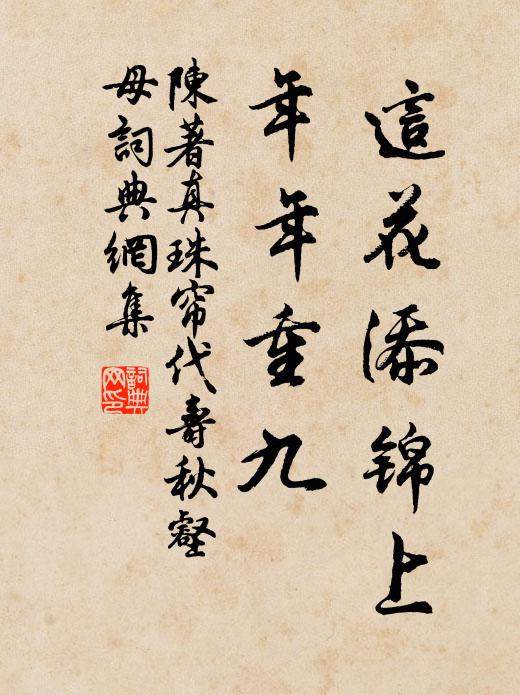 這花添錦上
年年重九
陳著真珠帘代壽秋壑
母詞典網集
詞典
网印